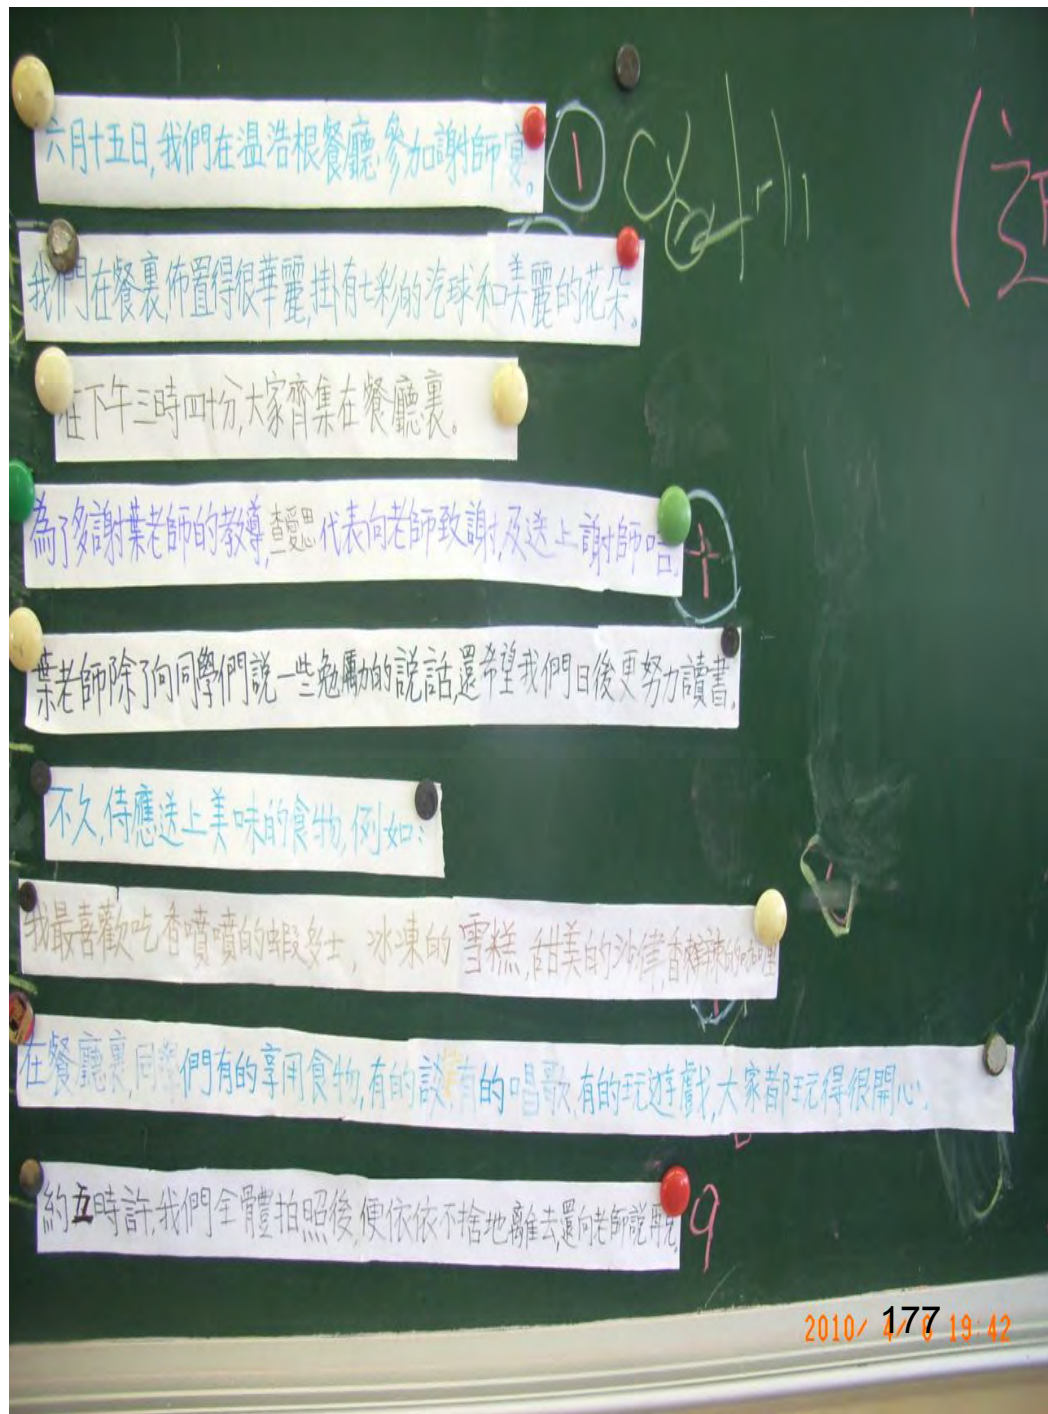 六月十五日,我們在温浩根餐廳,參加謝師宴。
①
我們在餐裏,佈置得很華麗,掛有七彩的汽球和美麗的花朵。
在下午三時四十分,大家齊集在餐廳裏。
為了多謝葉老師的教導,查愛思代表向老師致謝,及送上謝師咭。
葉老師除了向同學們説一些勉勵的説話,還希望我們日後更努力讀書。
不久,侍應送上美味的食物,例如:
我最喜歡吃香噴噴的蝦多士,冰凍的雪糕,甜美的沙律,香辣辣的咖喱
在餐廳裏,同學們有的享用食物,有的談,有的唱歌,有的玩遊戲,大家都玩得很開心。
約五時許,我們全體拍照後,便依依不捨地離去,還向老師説再見。
9
177
2010/ 4/ 19:42